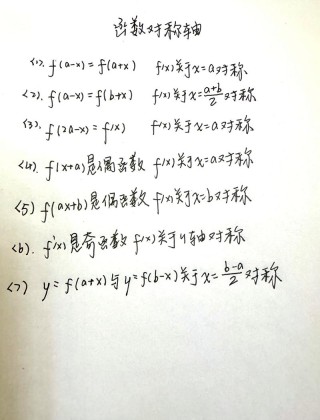 函数对称轴
<1>. f(a-x)=f(a+x) f(x)关于x=a对称
<2>. f(a-x)=f(b+x) f(x)关于x=\frac{a+b}{2}对称
<3>. f(2a-x)=f(x) f(x)关于x=a对称
<4>. f(x+a)是偶函数 f(x)关于x=a对称
<5> f(ax+b)是偶函数 f(x)关于x=b对称
<6>. f'(x)是奇函数 f(x)关于y轴对称
<7> y=f(a+x)与y=f(b-x)关于x=\frac{b-a}{2}对称